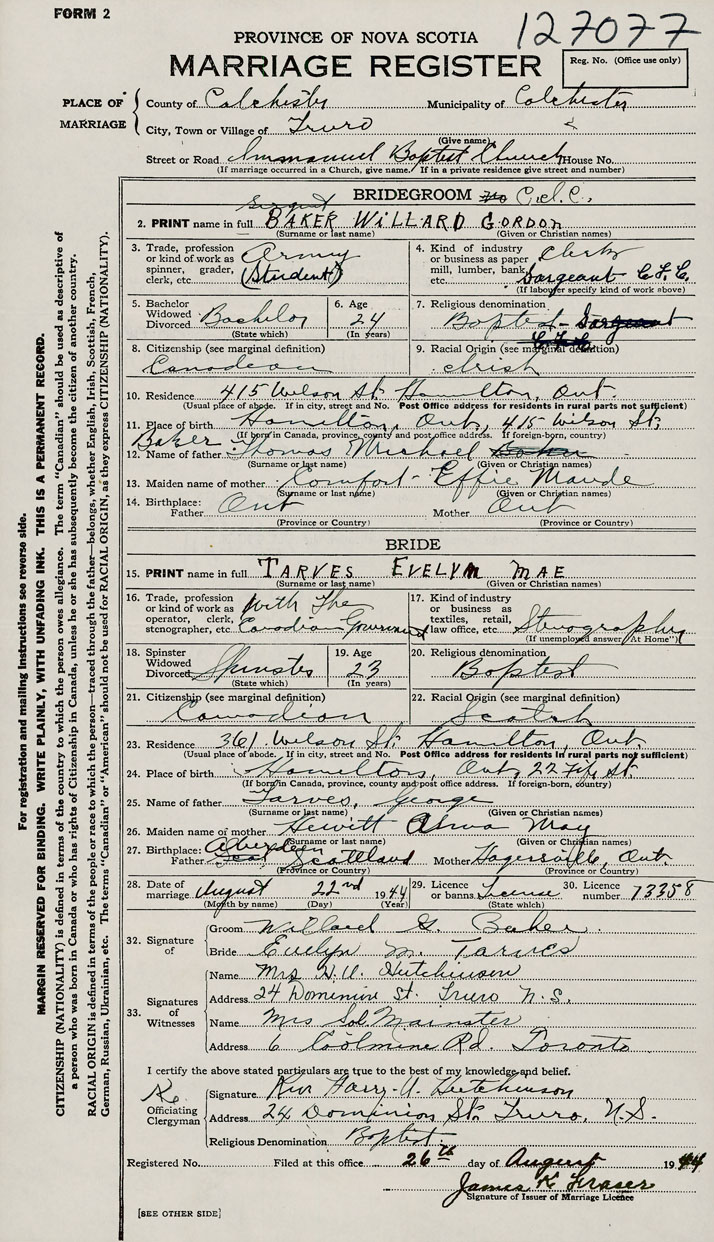 FORM 2
127077
PROVINCE OF NOVA SCOTIA
MARRIAGE REGISTER
Reg. No. (Office use only)
PLACE OF MARRIAGE
County of Colchester Municipality of Colchester
City, Town or Village of Truro
(Give name)
Street or Road Immanuel Baptist Church House No.
(If marriage occurred in a Church, give name. If in a private residence give street and number)
BRIDEGROOM C.I.C.
2. PRINT name in full BAKER WILLARD GORDON
(Surname or last name) (Given or Christian names)
3. Trade, profession or kind of work as spinner, grader, clerk, etc. Army (Student)
4. Kind of industry or business as paper mill, lumber, bank, etc. Clerk Sargeant
(If labourer specify kind of work above)
5. Bachelor Widowed Divorced Bachelor
(State which)
6. Age 24
(In years)
7. Religious denomination Baptist
8. Citizenship (see marginal definition) Canadian
9. Racial Origin (see marginal definition) Irish
10. Residence 415 Wilson St. Hamilton, Ont.
(Usual place of abode. If in city, street and No. Post Office address for residents in rural parts not sufficient)
11. Place of birth Hamilton, Ont, 415 Wilson St.
(If born in Canada, province, county and post office address. If foreign-born, country)
12. Name of father Baker Thomas Michael
(Surname or last name) (Given or Christian names)
13. Maiden name of mother Comfort - Effie Maude
(Surname or last name) (Given or Christian names)
14. Birthplace: Father Ont Mother Ont
(Province or Country) (Province or Country)
BRIDE
15. PRINT name in full TARVES EVELYN MAE
(Surname or last name) (Given or Christian names)
16. Trade, profession or kind of work as operator, clerk, stenographer, etc. With The Canadian Government
17. Kind of industry or business as textiles, retail, law office, etc. Stenography
(If unemployed answer "At Home")
18. Spinster Widowed Divorced Spinster
(State which)
19. Age 23
(In years)
20. Religious denomination Baptist
21. Citizenship (see marginal definition) Canadian
22. Racial Origin (see marginal definition) Scotch
23. Residence 361 Wilson St. Hamilton, Ont.
(Usual place of abode. If in city, street and No. Post Office address for residents in rural parts not sufficient)
24. Place of birth Hamilton, Ont, 22 Fife St.
(If born in Canada, province, county and post office address. If foreign-born, country)
25. Name of father Tarves, George
(Surname or last name) (Given or Christian names)
26. Maiden name of mother Hewitt Alma May
(Surname or last name) (Given or Christian names)
27. Birthplace: Father Aberdeen Scottland Mother Hagersville, Ont.
(Province or Country) (Province or Country)
28. Date of marriage August 22nd 1944
(Month by name) (Day) (Year)
29. Licence or banns License
(State which)
30. Licence number 73358
32. Signature of
Groom Willard G. Baker
Bride Evelyn M. Tarves
33. Signatures of Witnesses
Name Mrs H. A. Hutchinson
Address 24 Dominion St. Truro N.S.
Name Mrs Sol Mainster
Address 6 Coolmine Rd. Toronto
I certify the above stated particulars are true to the best of my knowledge and belief.
Officiating Clergyman
Signature Rev Harry A. Hutchinson
Address 24 Dominion St. Truro, N.S.
Religious Denomination Baptist
Registered No. Filed at this office 26th day of August 1944
James K Fraser
Signature of Issuer of Marriage Licence
[SEE OTHER SIDE]
For registration and mailing instructions see reverse side.
MARGIN RESERVED FOR BINDING. WRITE PLAINLY, WITH UNFADING INK. THIS IS A PERMANENT RECORD.
CITIZENSHIP (NATIONALITY) is defined in terms of the country to which the person owes allegiance. The term "Canadian" should be used as descriptive of
a person who was born in Canada or who has rights of Citizenship in Canada, unless he or she has subsequently become the citizen of another country.
RACIAL ORIGIN is defined in terms of the people or race to which the person—traced through the father—belongs, whether English, Irish, Scottish, French,
German, Russian, Ukrainian, etc. The terms "Canadian" or "American" should not be used for RACIAL ORIGIN, as they express CITIZENSHIP (NATIONALITY).